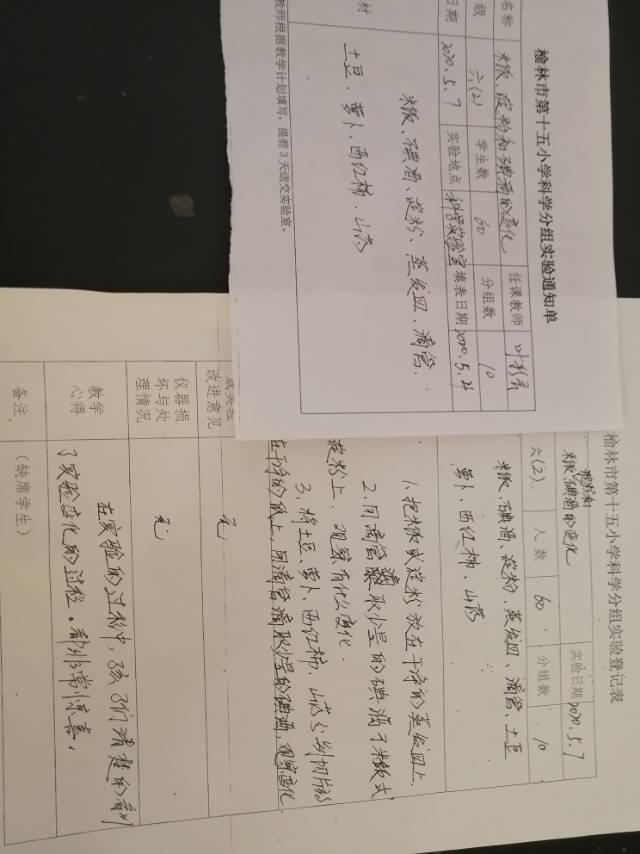 榆林市第十五小学科学分组实验通知单
名称 米饭、淀粉和碘酒的变化 任课教师
级 六(2) 学生数 60 分组数 10
日期 2020.5.7 实验地点 科学实验室 填表日期 2020.5.21
材
米饭、碘酒、淀粉、蒸发皿、滴管.
土豆、萝卜、西红柿、山药
教师根据教学计划填写,提前3天送交实验室。
榆林市第十五小学科学分组实验登记表
米饭 碘酒的变化 实验日期 2020.5.7
六(2). 人数 60. 分组数 10
米饭、碘酒、淀粉、蒸发皿、滴管、土豆
萝卜、西红柿、山药
1.把米饭或淀粉放在干净的蒸发皿上.
2.用滴管 取少量的碘滴于米饭或
淀粉上.观察有什么变化.
3、将土豆、萝卜、西红柿、山药分别切片放
在干净的纸上,用滴管滴取少量的碘酒,观察变化.
改进意见 无
仪器损
坏与处
理情况
无
教学
心得
在实验的过程中,孩子们清楚的看到
了实验变化的过程。都非常惊喜.
备注. (缺席学生)